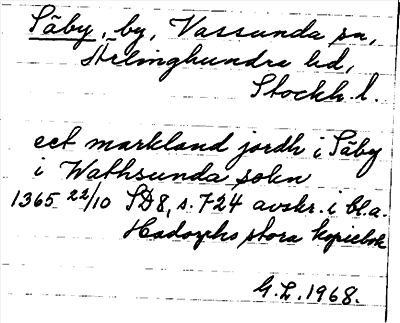 Säby, by, Vassunda sn,
Ärlinghundra hd,
Stockh. l.
ect markland jordh i Säby
i Wathsunda sokn
1365 22/10 SD8, s. 724 avskr. i bl.a.
Hadorphs stora kopiebok
G.L. 1968.